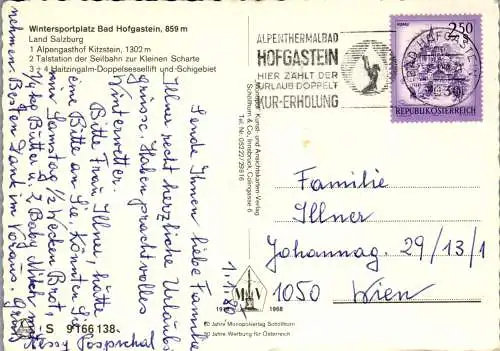 Wintersportplatz Bad Hofgastein, 859 m
Land Salzburg
1 Alpengasthof Kitzstein, 1302 m
2 Talstation der Seilbahn zur Kleinen Scharte
3 + 4 Haitzingalm-Doppelsessellift und -Schigebiet
ALPENTHERMALBAD
HOFGASTEIN
HIER ZÄHLT DER
URLAUB DOPPELT
KUR-ERHOLUNG
BAD HOFGASTEIN
2.50
REPUBLIK ÖSTERREICH
1.1.80
Sende Ihnen liebe Familie
Illner recht herzliche Urlaubs
grüsse. Haben prachtvolles
Winterwetter.
Bitte Frau Illner, hätte
eine Bitte an Sie, könnten Sie
mir Samstag 1/2 Wecken Brot,
1/4 kg Butter u. 2 Baby Milch mit
nehmen. Besten Dank im Voraus
Pospischal
Monopol Kunst- und Ansichtskarten-Verlag
Schöllhorn & Co, Innsbruck, Colingasse 6
Tel. Nr. 05222/29816
Familie
Illner
Johannag. 29/13/1
1050 Wien
1918 1968
50 Jahre Monopolverlag Schöllhorn
50 Jahre Werbung für Österreich
S 9166 138